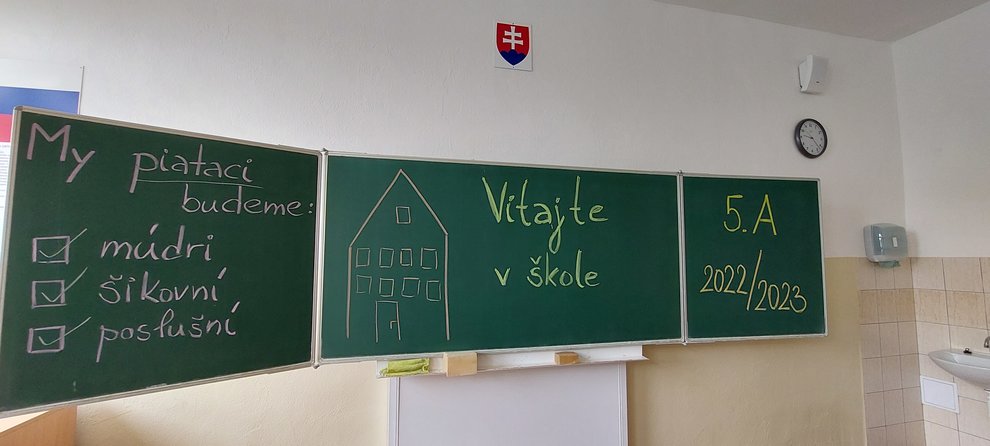 My piataci
budeme:
múdri
šikovní
poslušní
Vitajte
v škole
5.A
2022/2023